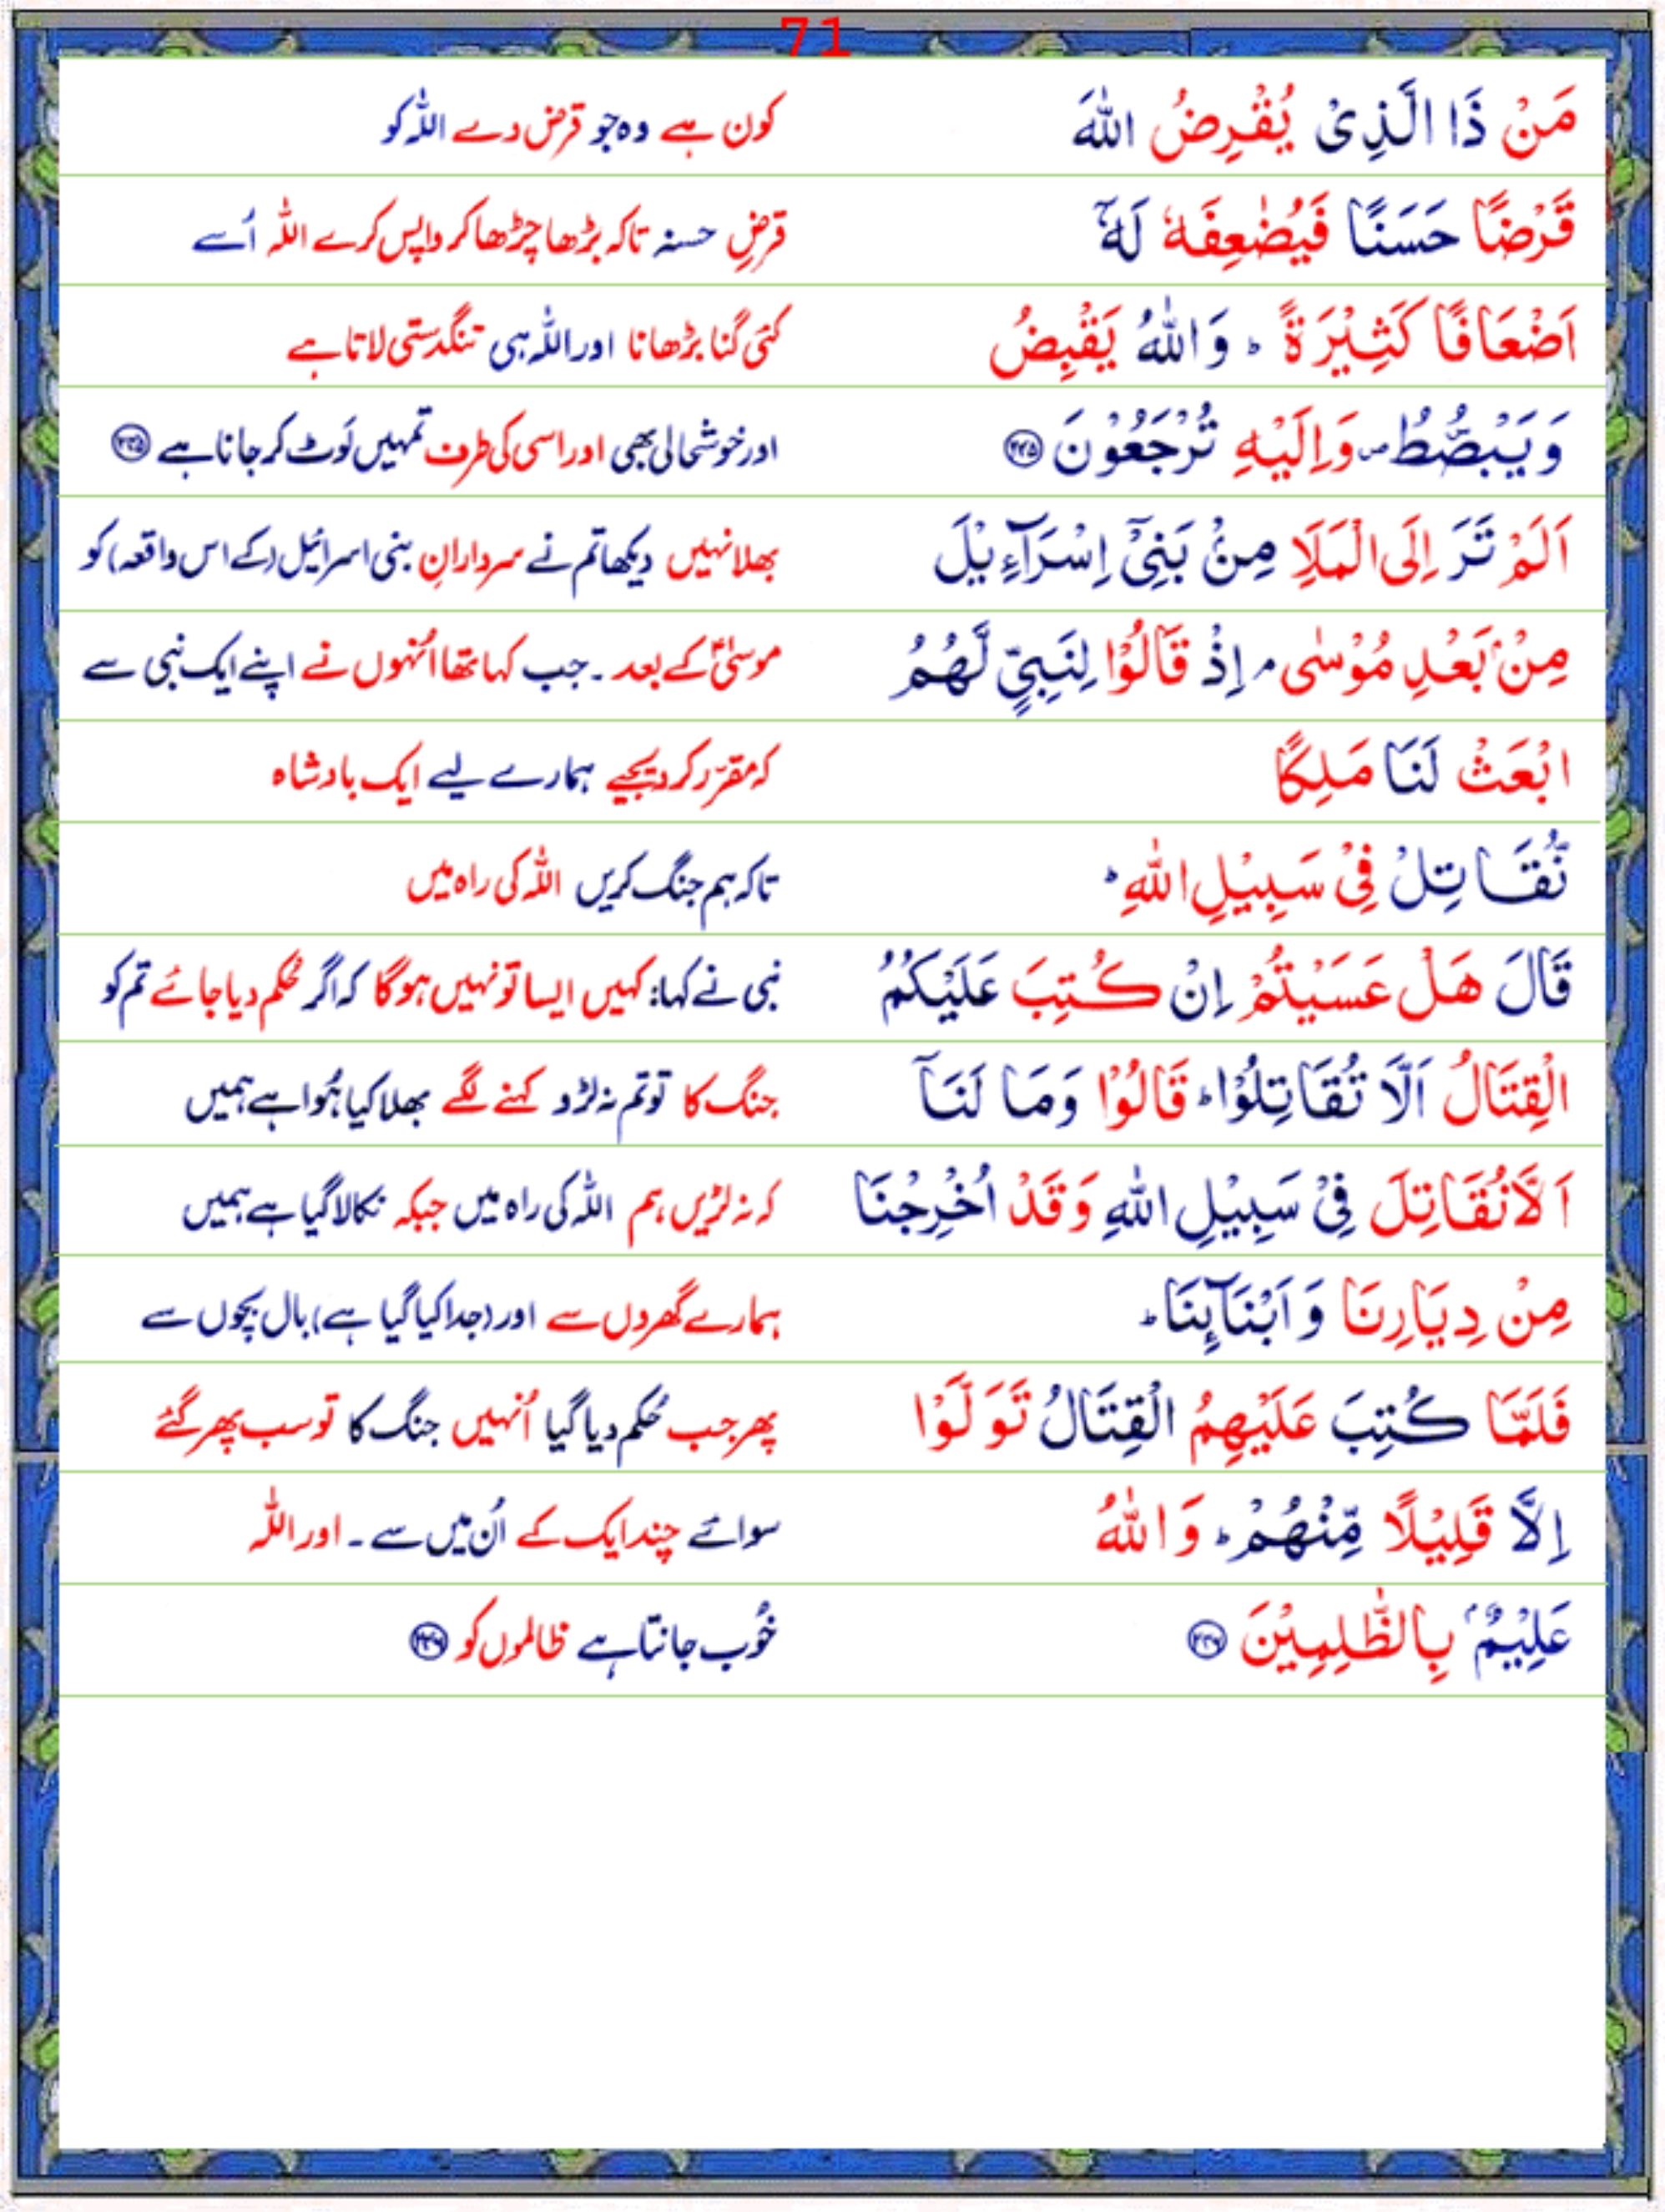 71
مَنْ ذَا الَّذِیْ یُقْرِضُ اللّٰهَ کون ہے وہ جو قرض دے اللہ کو
قَرْضًا حَسَنًا فَیُضٰعِفَهٗ لَهٗۤ قرضِ حسنہ تاکہ بڑھا چڑھا کر واپس کرے اللہ اُسے
اَضْعَافًا کَثِیْرَةً ؕ وَاللّٰهُ یَقْبِضُ کئی گنا بڑھانا اور اللہ ہی تنگدستی لاتا ہے
وَیَبْصُۜطُ ۪ وَاِلَیْهِ تُرْجَعُوْنَ ﴿۲۴۵﴾ اور خوشحالی بھی اور اسی کی طرف تمہیں لَوٹ کر جانا ہے ﴿۲۴۵﴾
اَلَمْ تَرَ اِلَی الْمَلَاِ مِنْۢ بَنِیْۤ اِسْرَآءِیْلَ بھلا نہیں دیکھا تم نے سردارانِ بنی اسرائیل (کے اس واقعہ) کو
مِنْۢ بَعْدِ مُوْسٰی ۘ اِذْ قَالُوْا لِنَبِیٍّ لَّهُمُ موسیٰؑ کے بعد۔ جب کہا تھا اُنہوں نے اپنے ایک نبی سے
ابْعَثْ لَنَا مَلِکًا کہ مقرّر کر دیجیے ہمارے لیے ایک بادشاہ
نُّقَاتِلْ فِیْ سَبِیْلِ اللّٰهِ ؕ تاکہ ہم جنگ کریں اللہ کی راہ میں
قَالَ هَلْ عَسَیْتُمْ اِنْ کُتِبَ عَلَیْکُمُ نبی نے کہا: کہیں ایسا تو نہیں ہوگا کہ اگر حُکم دیا جائے تم کو
الْقِتَالُ اَلَّا تُقَاتِلُوْا ؕ قَالُوْا وَمَا لَنَاۤ جنگ کا تو تم نہ لڑو کہنے لگے بھلا کیا ہُوا ہے ہمیں
اَلَّا نُقَاتِلَ فِیْ سَبِیْلِ اللّٰهِ وَقَدْ اُخْرِجْنَا کہ نہ لڑیں ہم اللہ کی راہ میں جبکہ نکالا گیا ہے ہمیں
مِنْ دِیَارِنَا وَاَبْنَآئِنَا ؕ ہمارے گھروں سے اور (جدا کیا گیا ہے) بال بچّوں سے
فَلَمَّا کُتِبَ عَلَیْهِمُ الْقِتَالُ تَوَلَّوْا پھر جب حُکم دیا گیا اُنہیں جنگ کا تو سب پھر گئے
اِلَّا قَلِیْلًا مِّنْهُمْ ؕ وَاللّٰهُ سوائے چند ایک کے اُن میں سے۔ اور اللہ
عَلِیْمٌۢ بِالظّٰلِمِیْنَ ﴿۲۴۶﴾ خُوب جانتا ہے ظالموں کو ﴿۲۴۶﴾